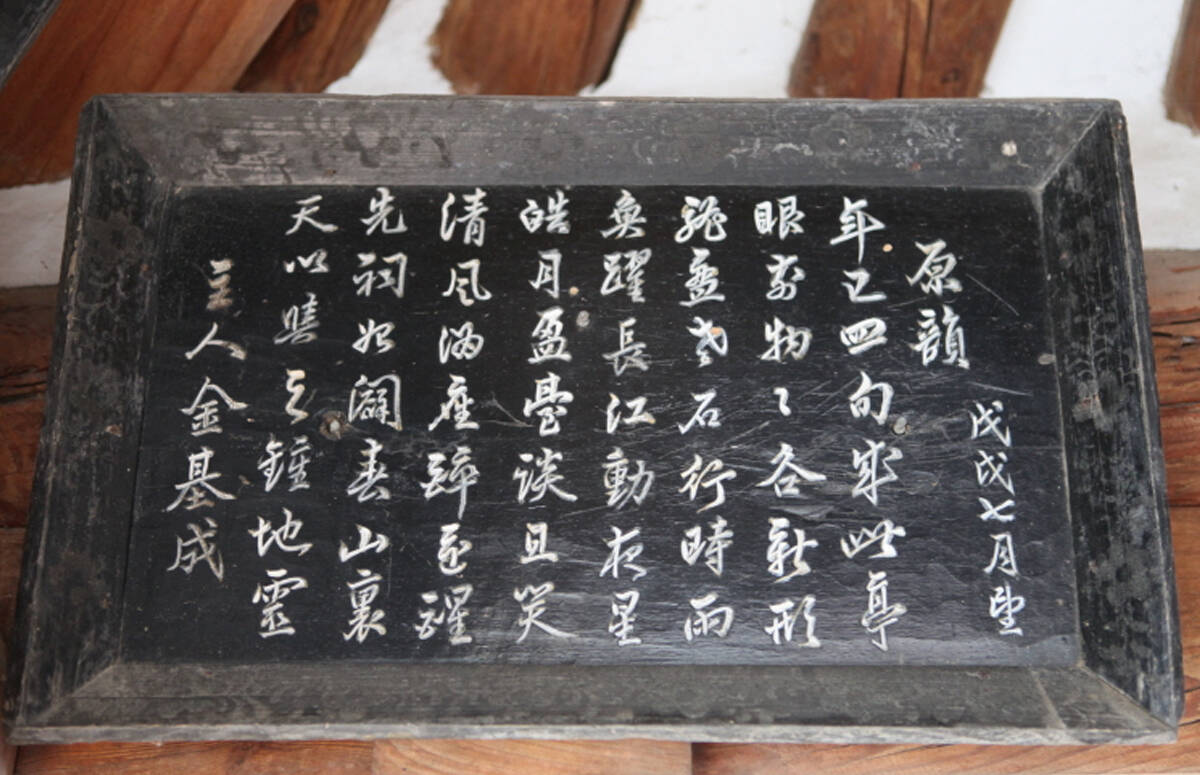 原韻 戊戌七月望
年已四旬成此亭
眼前物〻各新形
龍盘老石行時雨
魚躍長江動夜星
皓月盈臺談且笑
清風滿座醉還醒
先祠始闢春山裏
天以之鍾地靈
主人金基成